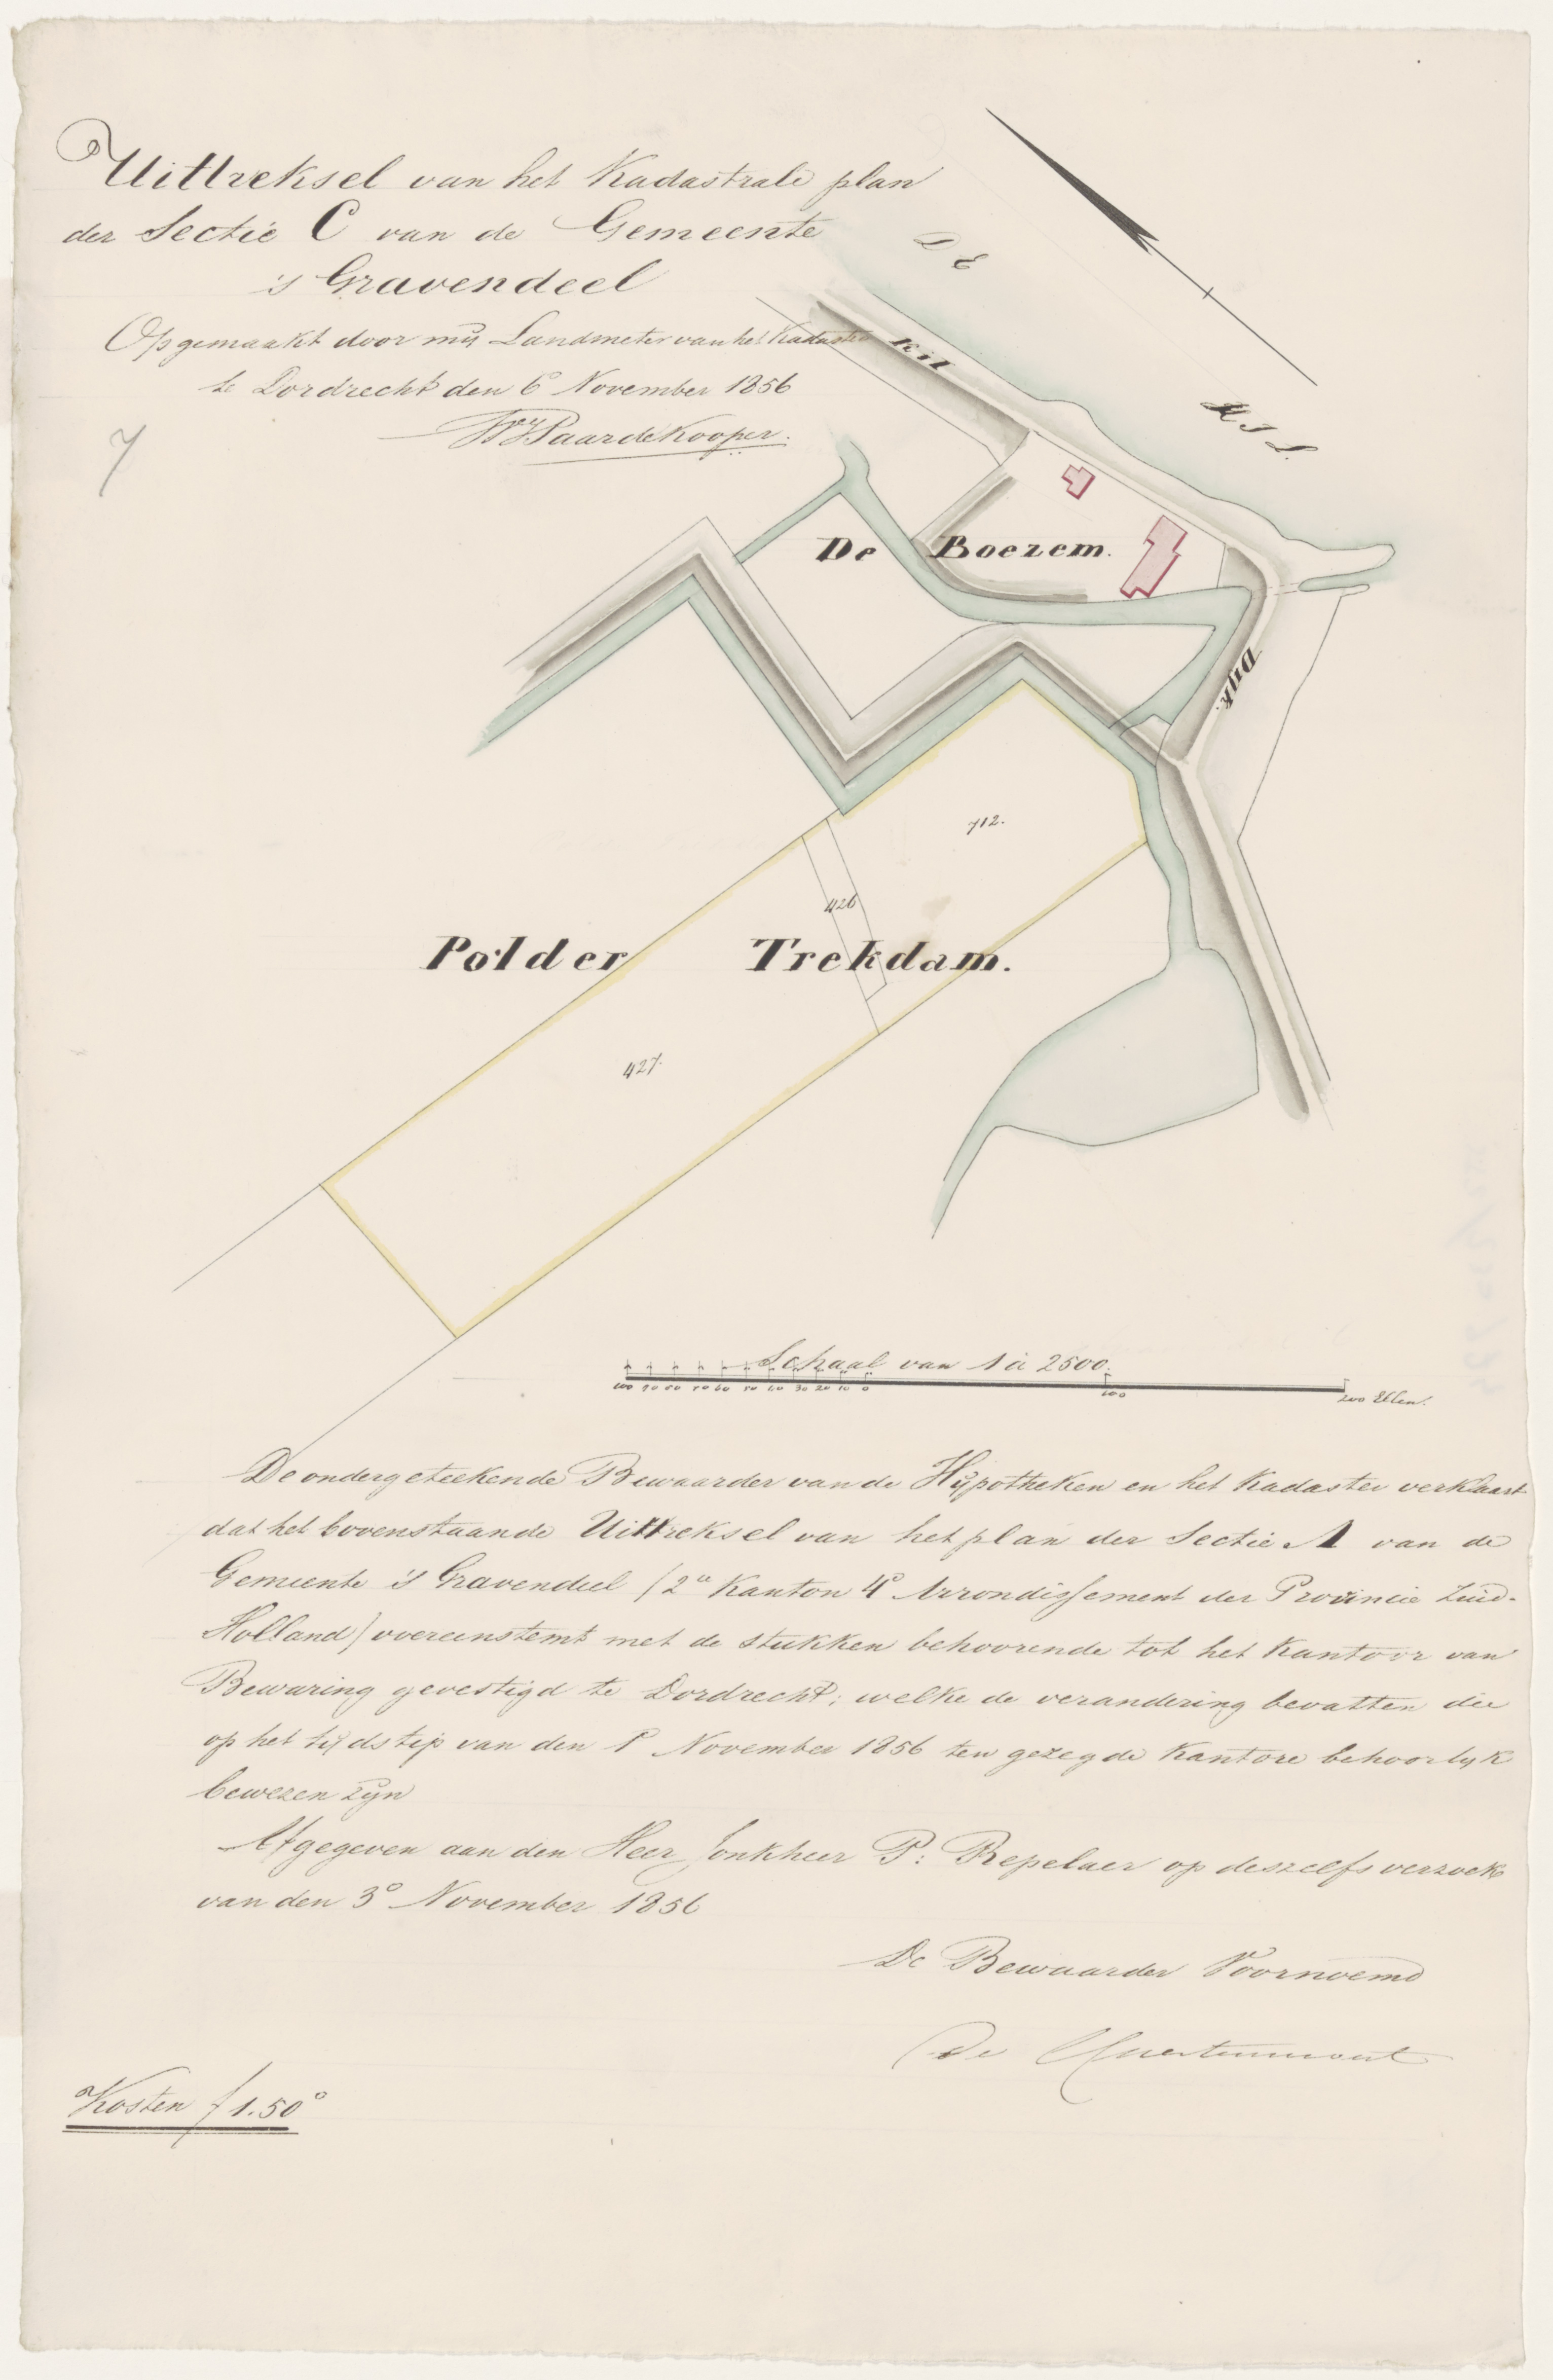 Uittreksel van het Kadastrale plan
der Sectie C van de Gemeente
's Gravendeel
Opgemaakt door mij Landmeter van het Kadaster
te Dordrecht den 6e November 1856
Paardekooper.
7
DE
KIL.
Kil
De Boezem.
Dijk.
712.
426
Polder Trekdam.
427.
Schaal van 1 à 2500.
100 90 80 70 60 50 40 30 20 10 0 100 200 Ellen.
De ondergeteekende Bewaarder van de Hypotheken en het Kadaster verklaart
dat het bovenstaande Uittreksel van het plan der Sectie A van de
Gemeente 's Gravendeel (2e Kanton 4e Arrondissement der Provincie Zuid-
Holland) overeenstemt met de stukken behoorende tot het Kantoor van
Bewaring gevestigd te Dordrecht; welke de verandering bevatten die
op het tijdstip van den 1e November 1856 ten gezegde Kantore behoorlijk
bewezen zijn
Afgegeven aan den Heer Jonkheer P: Repelaer op deszelfs verzoek
van den 3e November 1856
De Bewaarder Voornoemd
De
Kosten f 1.50